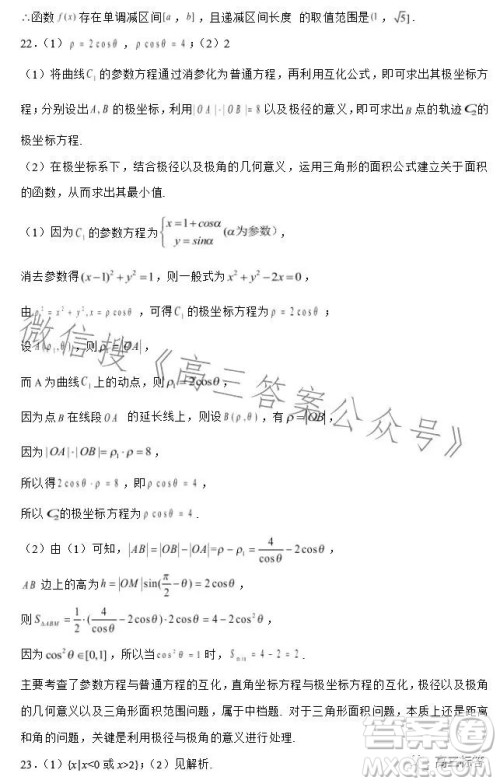 ∴函数 f(x) 存在单调减区间[a，b]，且递减区间长度 的取值范围是(1，√5].
22．(1) ρ=2cosθ，ρcosθ=4；(2) 2
(1) 将曲线C₁的参数方程通过消参化为普通方程，再利用互化公式，即可求出其极坐标方
程；分别设出A,B的极坐标，利用|OA|·|OB|=8以及极径的意义，即可求出B点的轨迹C₂的
极坐标方程.
(2) 在极坐标系下，结合极径以及极角的几何意义，运用三角形的面积公式建立关于面积
的函数，从而求出其最小值.
(1) 因为C₁的参数方程为{x=1+cosα y=sinα (α为参数)，
消去参数得(x−1)²+y²=1，则一般式为x²+y²−2x=0，
由ρ²=x²+y²,x=ρcosθ，可得C₁的极坐标方程为ρ=2cosθ；
设A(ρ₁,θ)，则ρ₁=|OA|，
而A为曲线C₁上的动点，则ρ₁=2cosθ，
因为点B在线段OA 的延长线上，则设B(ρ,θ)，有ρ=|OB|，
因为|OA|·|OB|=ρ₁·ρ=8，
所以得2cosθ·ρ=8，即ρcosθ=4，
所以C₂的极坐标方程为ρcosθ=4.
(2) 由(1)可知，|AB|=|OB|−|OA|=ρ−ρ₁=4/cosθ−2cosθ，
AB 边上的高为h=|OM|sin(π/2−θ)=2cosθ，
则S△ABM=1/2·(4/cosθ−2cosθ)·2cosθ=4−2cos²θ，
因为cos²θ∈[0,1]，所以当cos²θ=1时，S=4−2=2.
主要考查了参数方程与普通方程的互化，直角坐标方程与极坐标方程的互化，极径以及极角
的几何意义以及三角形面积范围问题，属于中档题. 对于三角形面积问题，本质上还是距离
和角的问题，关键是利用极径与极角的意义进行处理.
23．(1) {x|x<0 或 x>2}；(2) 见解析.
微信搜《高三答案公众号》